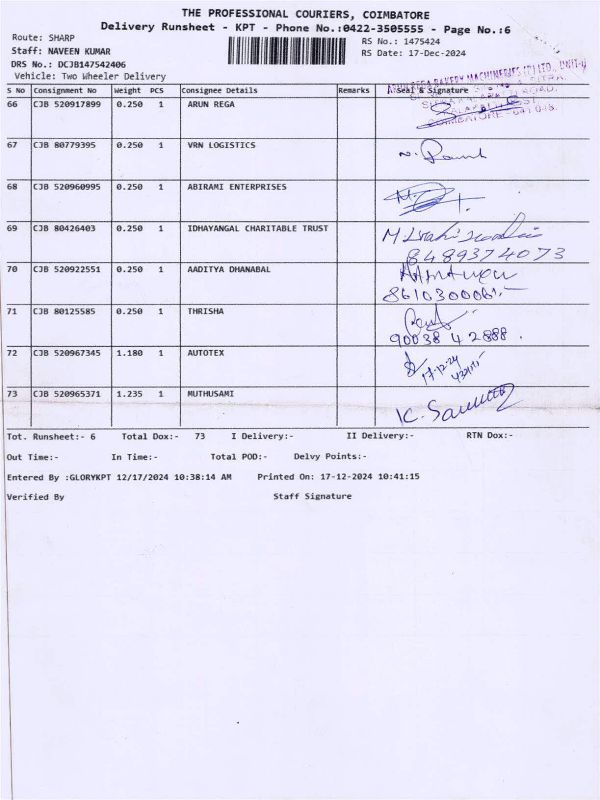 THE PROFESSIONAL COURIERS, COIMBATORE
Delivery Runsheet - KPT - Phone No.:0422-3505555 - Page No.:6
Route: SHARP
RS No.: 1475424
Staff: NAVEEN KUMAR
RS Date: 17-Dec-2024
DRS No.: DCJB147542406
Vehicle: Two Wheeler Delivery
BAKERY MACHINERIES (P) LTD., UNIT-II
S No Consignment No Weight PCS Consignee Details Remarks Seal & Signature
66 CJB 520917899 0.250 1 ARUN REGA
ROAD,
COIMBATORE - 641 048.
67 CJB 80779395 0.250 1 VRN LOGISTICS
68 CJB 520960995 0.250 1 ABIRAMI ENTERPRISES
69 CJB 80426403 0.250 1 IDHAYANGAL CHARITABLE TRUST
8489374073
70 CJB 520922551 0.250 1 AADITYA DHANABAL
8610300061
71 CJB 80125585 0.250 1 THRISHA
90038 42888.
72 CJB 520967345 1.180 1 AUTOTEX
17-12-24
73 CJB 520965371 1.235 1 MUTHUSAMI
Tot. Runsheet:- 6 Total Dox:- 73 I Delivery:- II Delivery:- RTN Dox:-
Out Time:- In Time:- Total POD:- Delvy Points:-
Entered By :GLORYKPT 12/17/2024 10:38:14 AM Printed On: 17-12-2024 10:41:15
Verified By Staff Signature